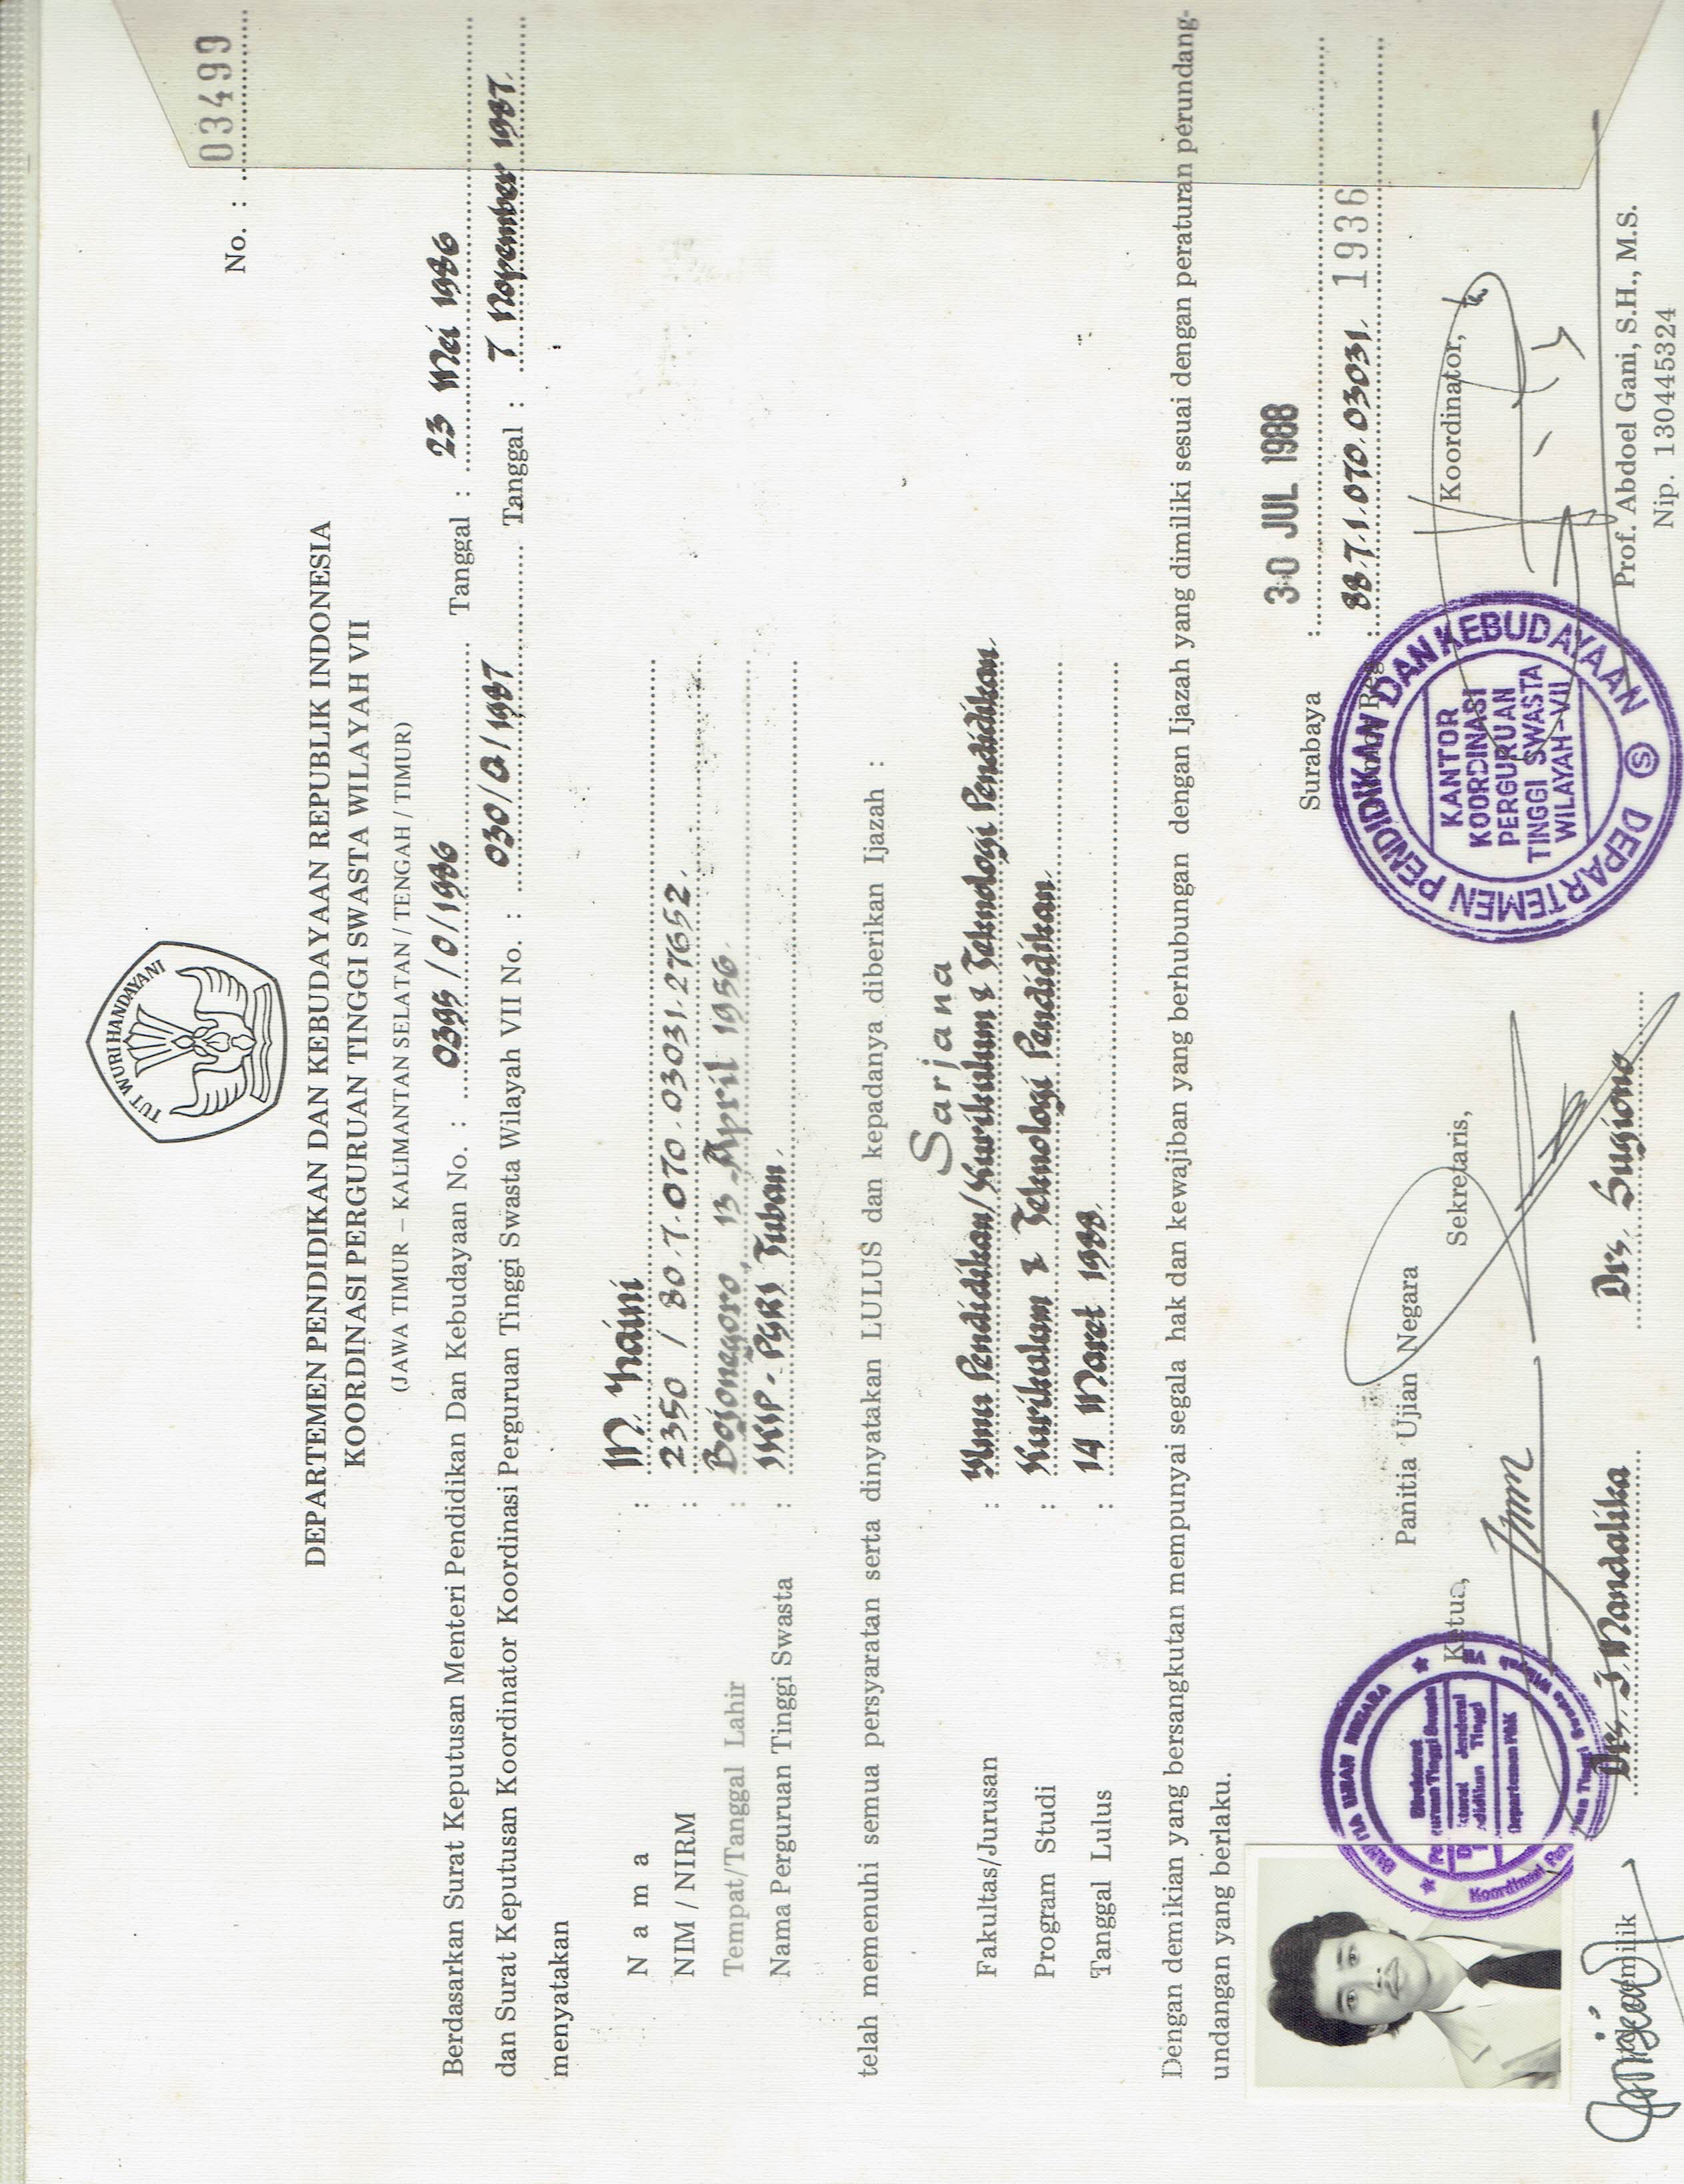 TUT WURI HANDAYANI
No. : 03499
DEPARTEMEN PENDIDIKAN DAN KEBUDAYAAN REPUBLIK INDONESIA
KOORDINASI PERGURUAN TINGGI SWASTA WILAYAH VII
(JAWA TIMUR – KALIMANTAN SELATAN / TENGAH / TIMUR)
Berdasarkan Surat Keputusan Menteri Pendidikan Dan Kebudayaan No. : 0395/0/1986 Tanggal : 23 Mei 1986
dan Surat Keputusan Koordinator Koordinasi Perguruan Tinggi Swasta Wilayah VII No. : 030/Q/1987 Tanggal : 7 Nopember 1987.
menyatakan
N a m a : M. Zhaini
NIM / NIRM : 2350 / 80.7.070.03031.27652.
Tempat/Tanggal Lahir : Bojonegoro, 13 April 1956.
Nama Perguruan Tinggi Swasta : IKIP - PGRI Tuban.
telah memenuhi semua persyaratan serta dinyatakan LULUS dan kepadanya diberikan Ijazah :
Sarjana
Fakultas/Jurusan : Ilmu Pendidikan/Kurikulum & Teknologi Pendidikan.
Program Studi : Kurikulum & Teknologi Pendidikan.
Tanggal Lulus : 14 Maret 1988.
Dengan demikian yang bersangkutan mempunyai segala hak dan kewajiban yang berhubungan dengan Ijazah yang dimiliki sesuai dengan peraturan perundang-
undangan yang berlaku.
Surabaya : 30 JUL 1988
Nomor Reg. : 88.7.1.070.03031. 1936
Panitia Ujian Negara
Ketua,
Sekretaris,
Koordinator,
PANITIA UJIAN NEGARA
Direktorat
Perguruan Tinggi Swasta
Direktorat Jenderal
Pendidikan Tinggi
Departemen P&K
Koordinasi Perguruan Tinggi Swasta Wilayah VII
DEPARTEMEN PENDIDIKAN DAN KEBUDAYAAN
KANTOR
KOORDINASI
PERGURUAN
TINGGI SWASTA
WILAYAH-VII
S
pemilik
Drs. J. Mandalika
Drs. Sugiono
Prof. Abdoel Gani, S.H., M.S.
Nip. 130445324